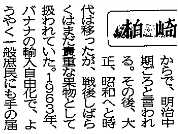 柏崎
からで、明治中
期ごろと言われ
る。その後、大
正、昭和へと時
代は移ったが、戦後しばら
くはまだ貴重な果物として
扱われていた。1963年、
バナナの輸入自由化で、よ
うやく一般庶民にも手の届